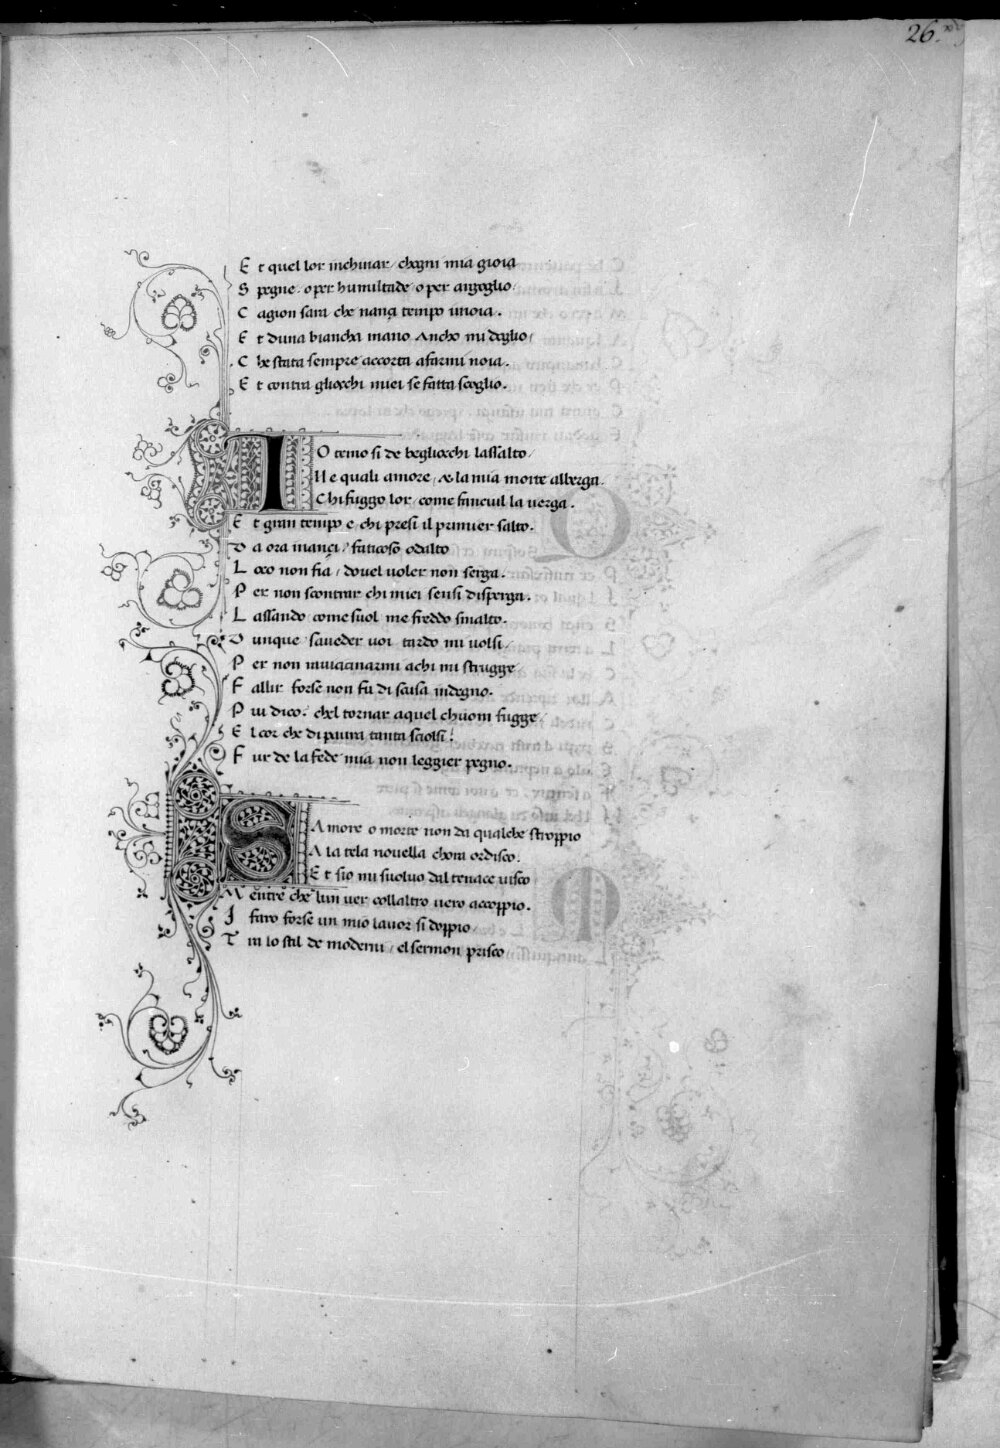 26.
E t quel lor inchinar / chogni mia gioia
S pegne . o per humiltade / o per argoglio .
C agion sara che nanzi tempo i moia .
E t duna biancha mano ancho mi doglio /
C he stata sempre accorta a farmi noia .
E t contra gliocchi miei se fatta scoglio .
IO temo si de begliocchi lassalto /
Ne quali amore / & la mia morte alberga .
Chi fuggo lor / come fanciul la verga .
E t gran tempo e / chi presi il primier salto .
D a ora inanzi / faticoso o dalto
L oco non fia / dovel voler non serga .
P er non scontrar chi miei sensi disperga .
L assando come suol / me freddo smalto .
D unque saveder voi tardo mi volsi /
P er non ravicinarmi a chi mi strugge
F allir forse non fu di scusa indegno .
P iu dico . chel tornar a quel chuom fugge
E l cor che di paura tanta sciolsi .
F ur de la fede mia non leggier pegno .
S Amore o morte non da qualche stroppio
A la tela novella chora ordisco .
E t sio mi svolvo dal tenace visco
M entre che lun ver collaltro vero accoppio .
I faro forse un mio lavor si doppio /
T ra lo stil de moderni / el sermon prisco /